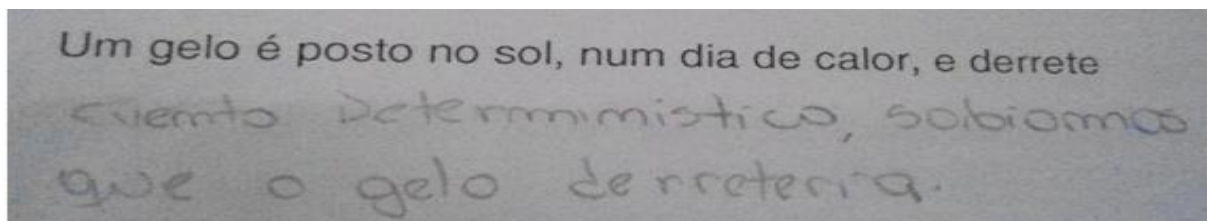 Um gelo é posto no sol, num dia de calor, e derrete
evento Determinístico, sabíamos
que o gelo derreteria.